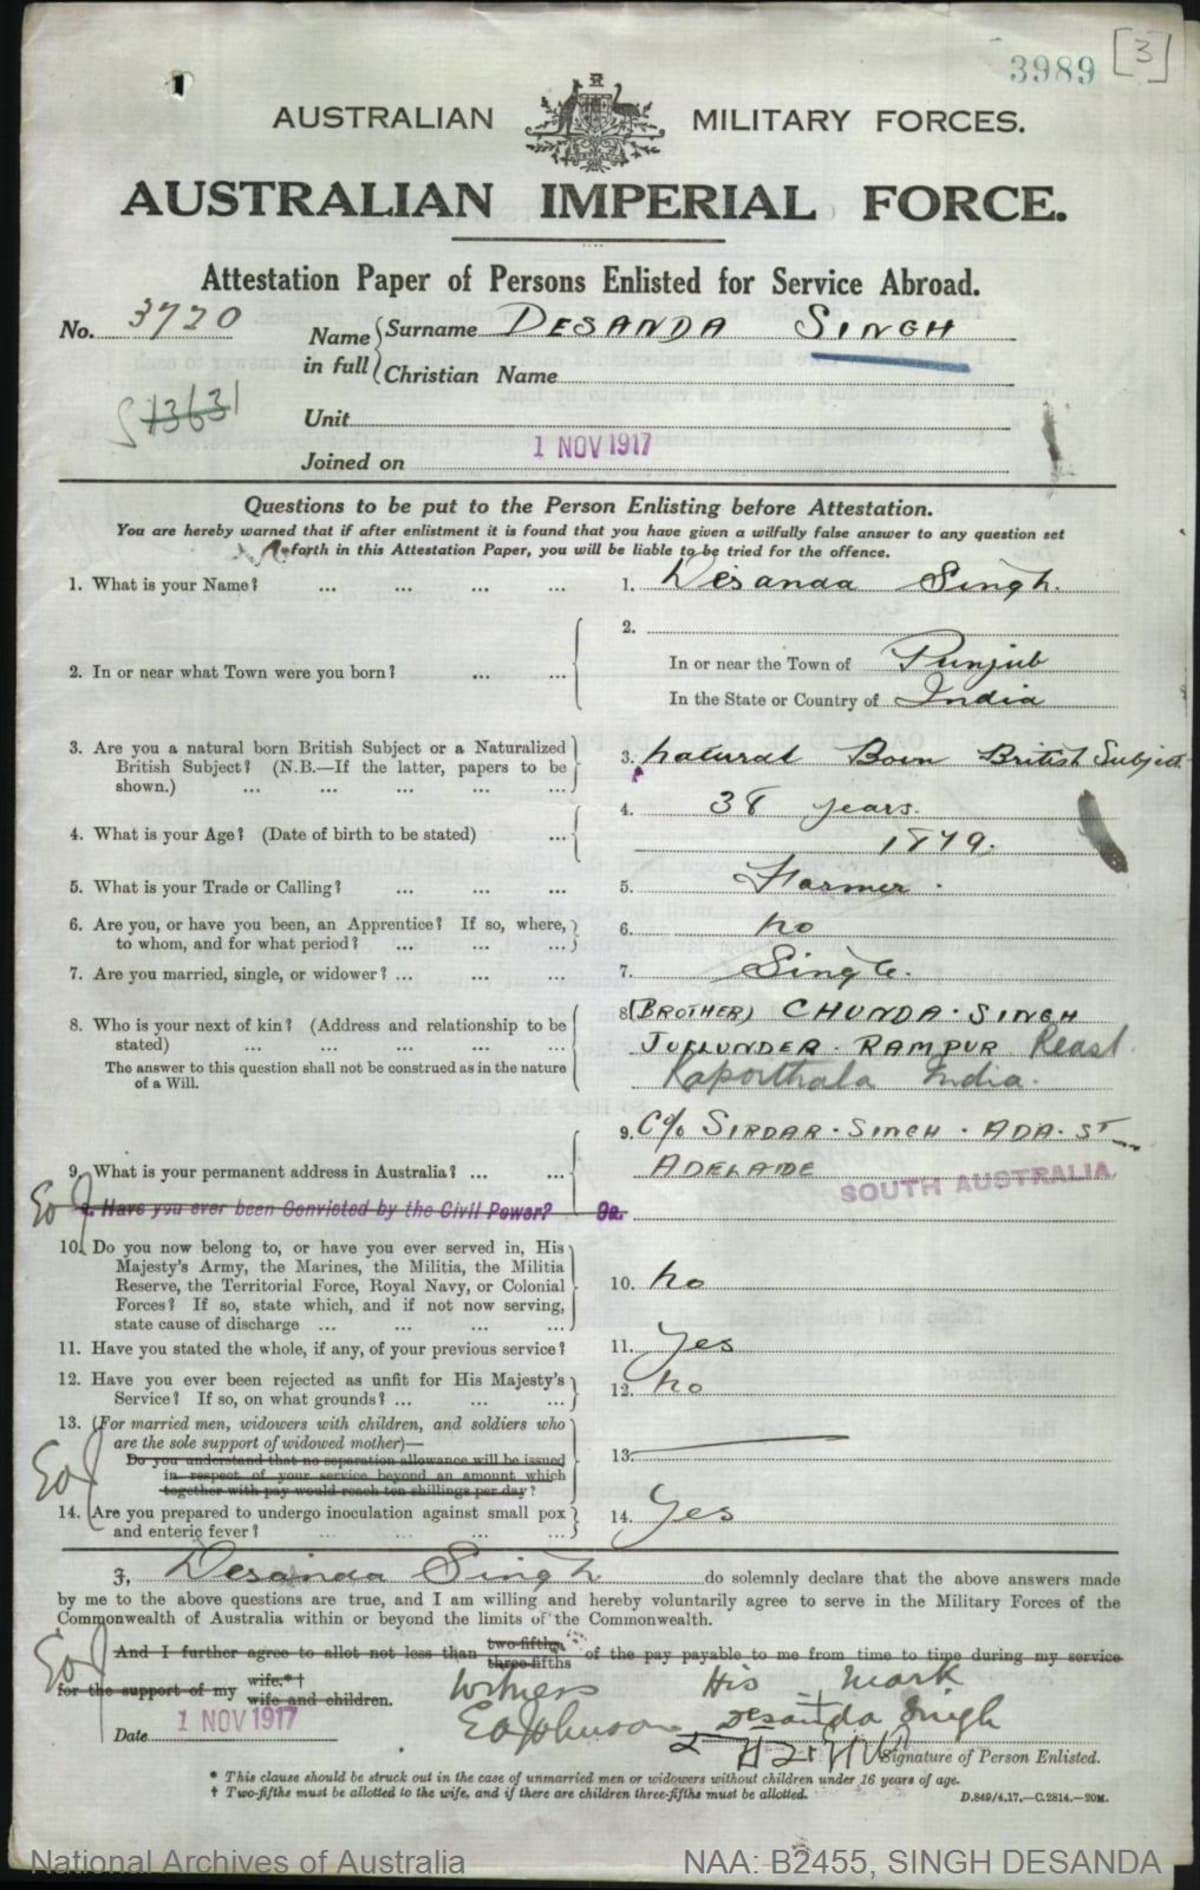 3989 [3]
AUSTRALIAN MILITARY FORCES.
AUSTRALIAN IMPERIAL FORCE.
Attestation Paper of Persons Enlisted for Service Abroad.
No. 3720 Name in full Surname DESANDA SINGH
Christian Name
Unit
Joined on 1 NOV 1917
Questions to be put to the Person Enlisting before Attestation.
You are hereby warned that if after enlistment it is found that you have given a wilfully false answer to any question set
forth in this Attestation Paper, you will be liable to be tried for the offence.
1. What is your Name? ... ... ... ... 1. Desanda Singh.
2.
2. In or near what Town were you born? ... ... In or near the Town of Punjub
In the State or Country of India
3. Are you a natural born British Subject or a Naturalized
British Subject? (N.B.—If the latter, papers to be
shown.) ... ... ... ... ...
3. Natural Born British Subject.
4. What is your Age? (Date of birth to be stated) ... 4. 38 years.
1879.
5. What is your Trade or Calling? ... ... ... 5. Farmer.
6. Are you, or have you been, an Apprentice? If so, where,
to whom, and for what period? ... ... ... 6. no
7. Are you married, single, or widower? ... ... ... 7. Single.
8. Who is your next of kin? (Address and relationship to be
stated) ... ... ... ... ...
The answer to this question shall not be construed as in the nature
of a Will.
8 (BROTHER) CHUNDA. SINGH
JULLUNDER. RAMPUR
Kaporthala India.
9. C/o SIRDAR. SINGH. ADA. ST
9. What is your permanent address in Australia? ... ... ADELAIDE
SOUTH AUSTRALIA
9. Have you ever been Convicted by the Civil Power? 9a.
10. Do you now belong to, or have you ever served in, His
Majesty's Army, the Marines, the Militia, the Militia
Reserve, the Territorial Force, Royal Navy, or Colonial
Forces? If so, state which, and if not now serving,
state cause of discharge ... ... ... ...
10. no
11. Have you stated the whole, if any, of your previous service? 11. Yes
12. Have you ever been rejected as unfit for His Majesty's
Service? If so, on what grounds? ... ... ... 12. no
13. (For married men, widowers with children, and soldiers who
are the sole support of widowed mother)—
Do you understand that no separation allowance will be issued
in respect of your service beyond an amount which
together with pay would reach ten shillings per day?
13.
14. Are you prepared to undergo inoculation against small pox
and enteric fever? ... ... ... ... 14. Yes
I, Desanda Singh do solemnly declare that the above answers made
by me to the above questions are true, and I am willing and hereby voluntarily agree to serve in the Military Forces of the
Commonwealth of Australia within or beyond the limits of the Commonwealth.
And I further agree to allot not less than two-fifths three-fifths of the pay payable to me from time to time during my service
for the support of my wife.*† wife and children.
Witness His mark
Date 1 NOV 1917 EaJohnson Desanda Singh
Signature of Person Enlisted.
* This clause should be struck out in the case of unmarried men or widowers without children under 16 years of age.
† Two-fifths must be allotted to the wife, and if there are children three-fifths must be allotted.
D.849/4.17.—C.2814.—20M.
National Archives of Australia NAA: B2455, SINGH DESANDA